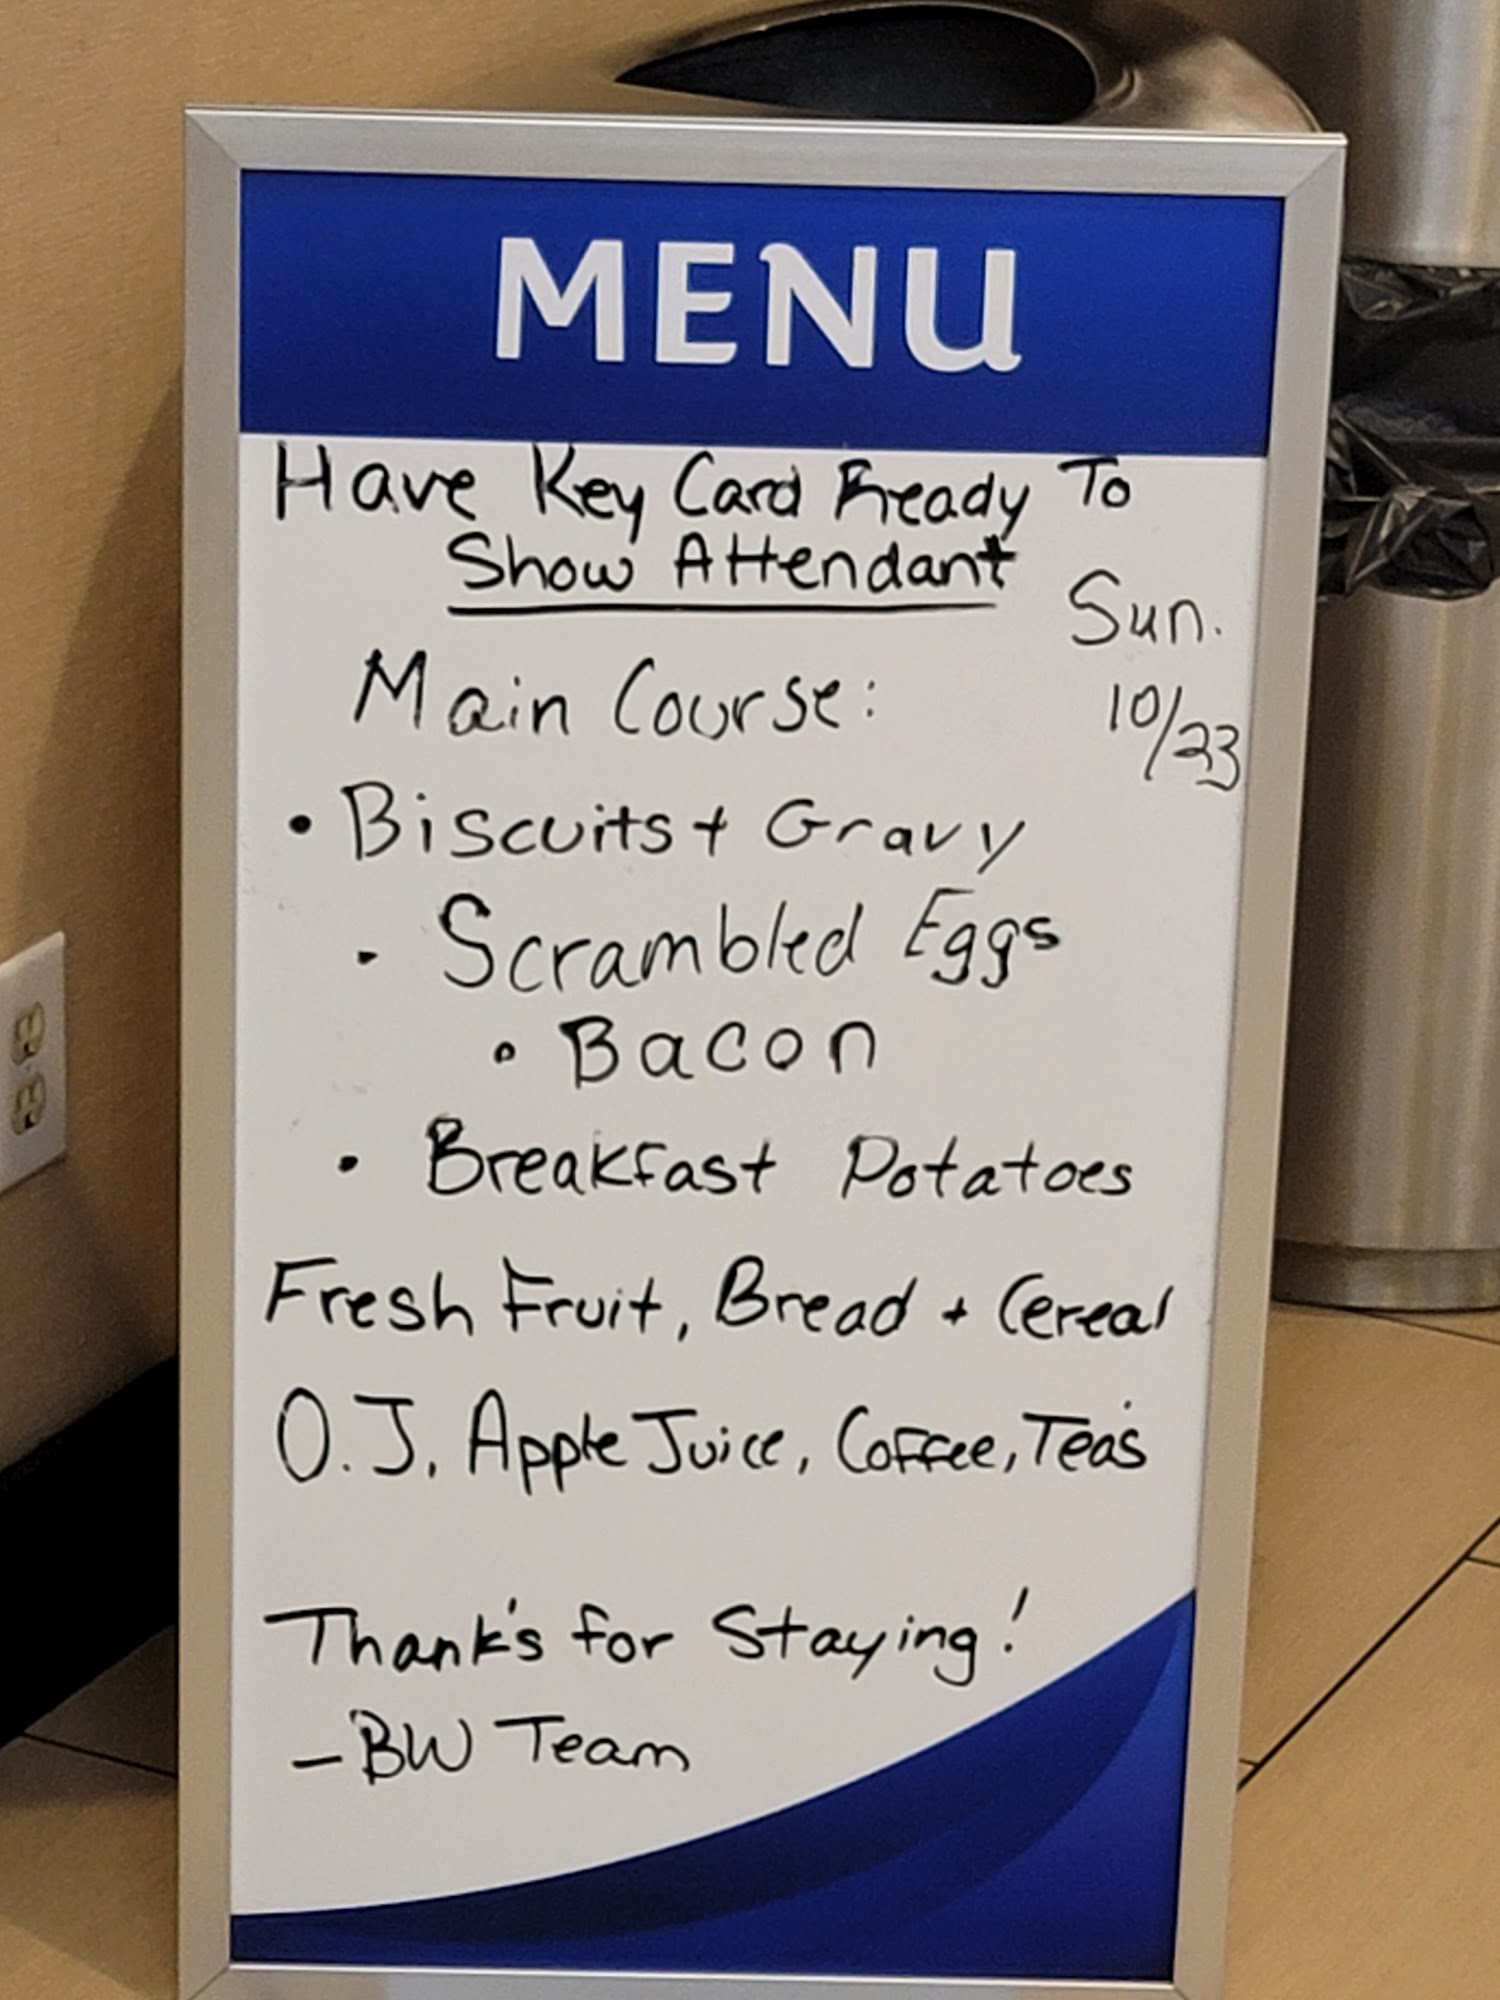 MENU
Have Key Card Ready To
Show Attendant
Sun.
10/23
Main Course:
• Biscuits + Gravy
• Scrambled Eggs
• Bacon
• Breakfast Potatoes
Fresh Fruit, Bread + Cereal
O.J., Apple Juice, Coffee, Tea's
Thank's for Staying!
- BW Team